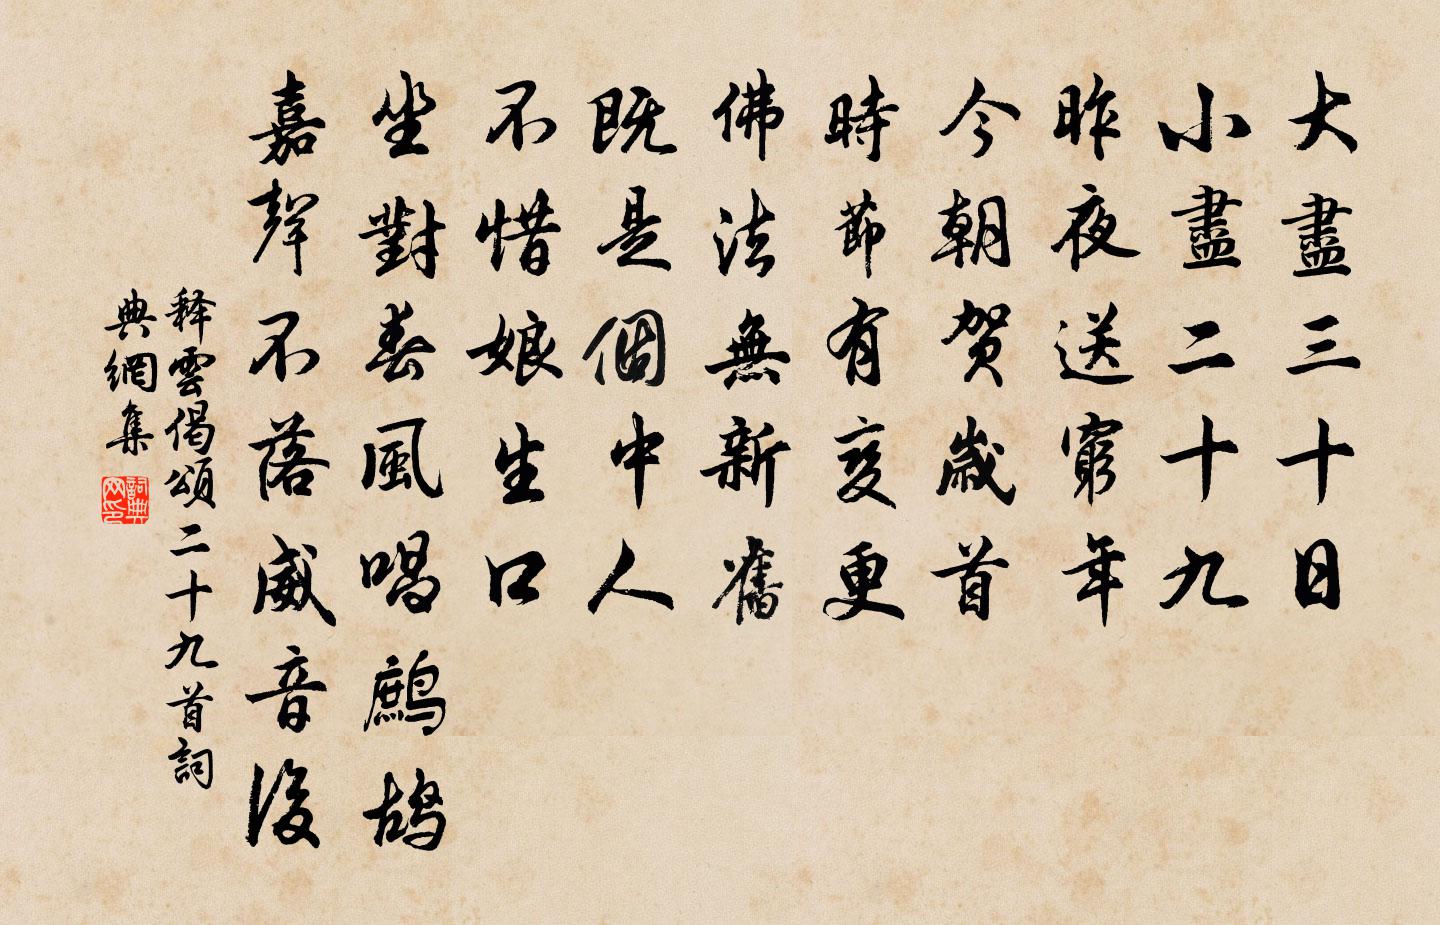 大盡三十日
小盡二十九
昨夜送窮年
今朝賀歲首
時節有變更
佛法無新舊
既是個中人
不惜娘生口
坐對春風唱鷓鴣
嘉聲不落威音後
释雲偈頌二十九首詞
典網集
詞典网印